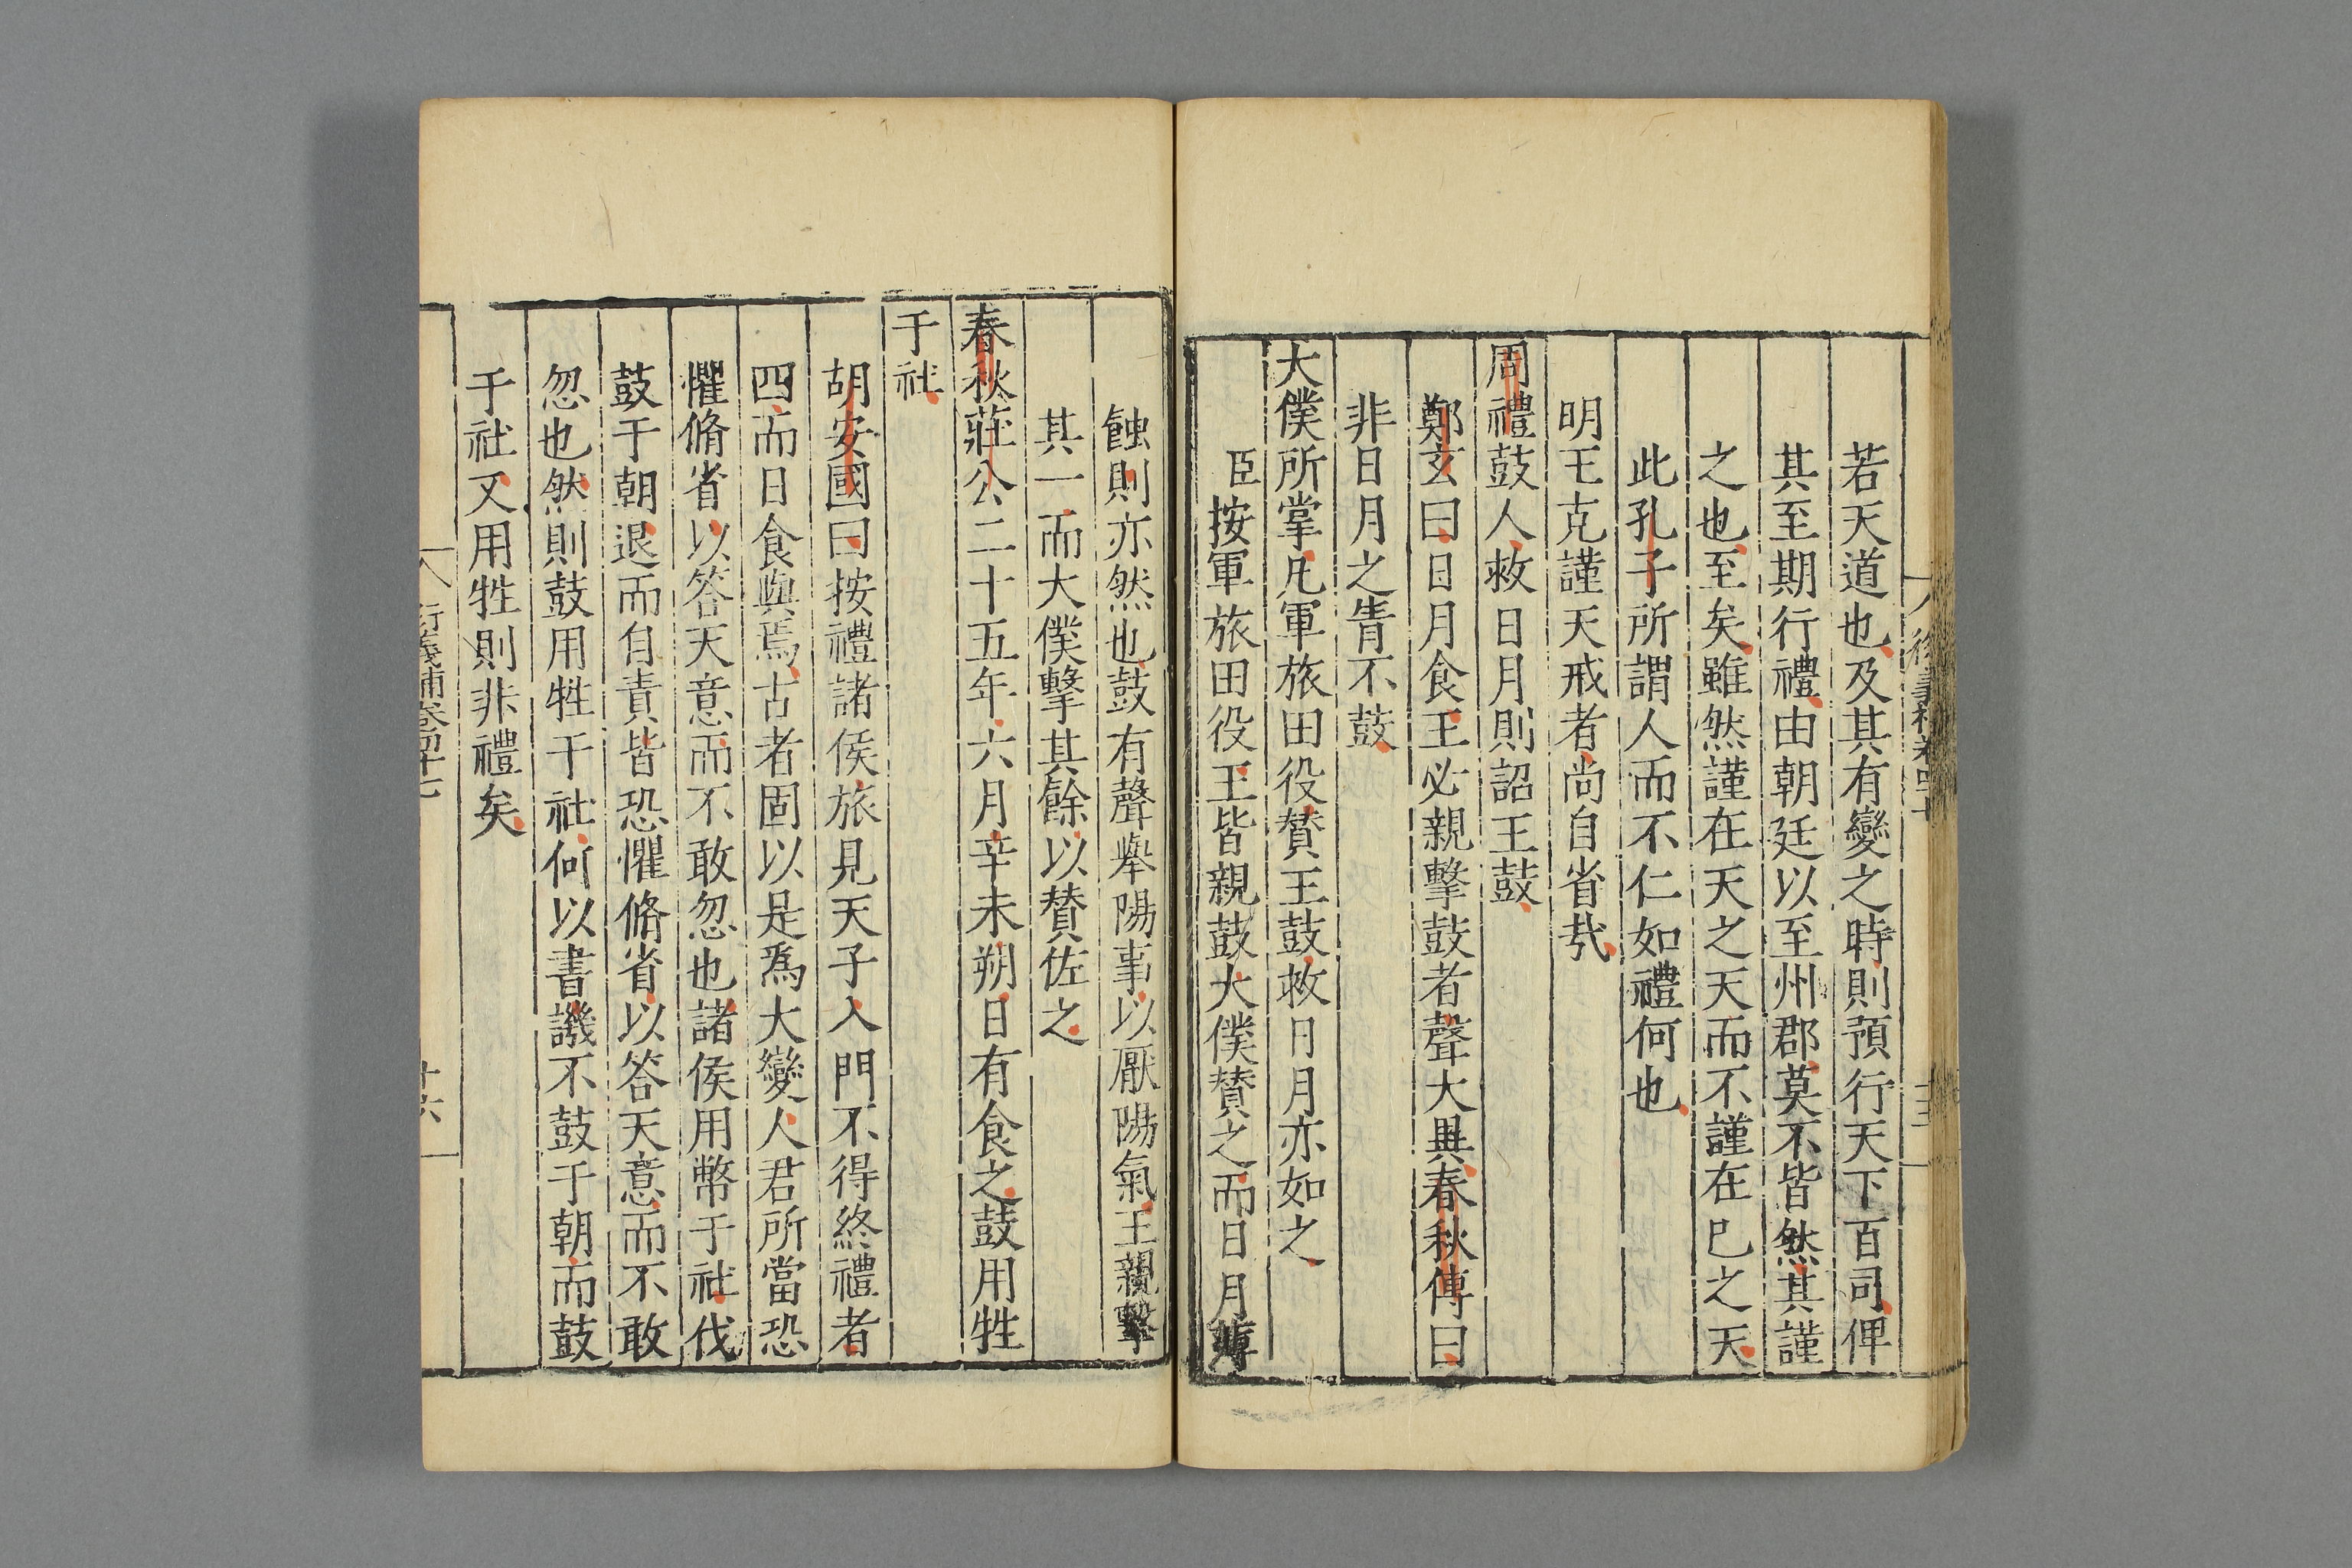 若天道也及其有變之時則預行天下百司俾
其至期行禮由朝廷以至州郡莫不皆然其謹
之也至矣雖然謹在天之天而不謹在巳之天
此孔子所謂人而不仁如禮何也
明王克謹天戒者尚自省㢤
周禮鼓人救日月則詔王鼓
鄭玄曰日月食王必親擊鼓者聲大異春秋傳曰
非日月之眚不鼓
大僕所掌凡軍旅田役賛王鼓救日月亦如之
臣按軍旅田役王皆親鼓大僕賛之而日月薄
蝕則亦然也鼓有聲舉陽事以厭陽氣王親擊
其一而大僕擊其餘以賛佐之
春秋莊公二十五年六月辛未朔日有食之鼓用牲
于社
胡安國曰按禮諸侯旅見天子入門不得終禮者
四而日食與焉古者固以是爲大變人君所當恐
懼脩省以答天意而不敢忽也諸侯用幣于社伐
鼓于朝退而自責皆恐懼脩省以答天意而不敢
忽也然則鼓用牲于社何以書譏不鼓于朝而鼓
于社又用牲則非禮矣
衍義補卷四十七
十六